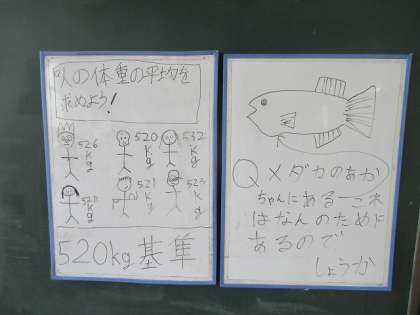 人の体重の平均を
求めよう!
526
kg
520
kg
532
kg
521
kg
523
kg
520kg 基準
Q メダカのあか
ちゃんにある→これ
はなんのために
あるので
しょうか